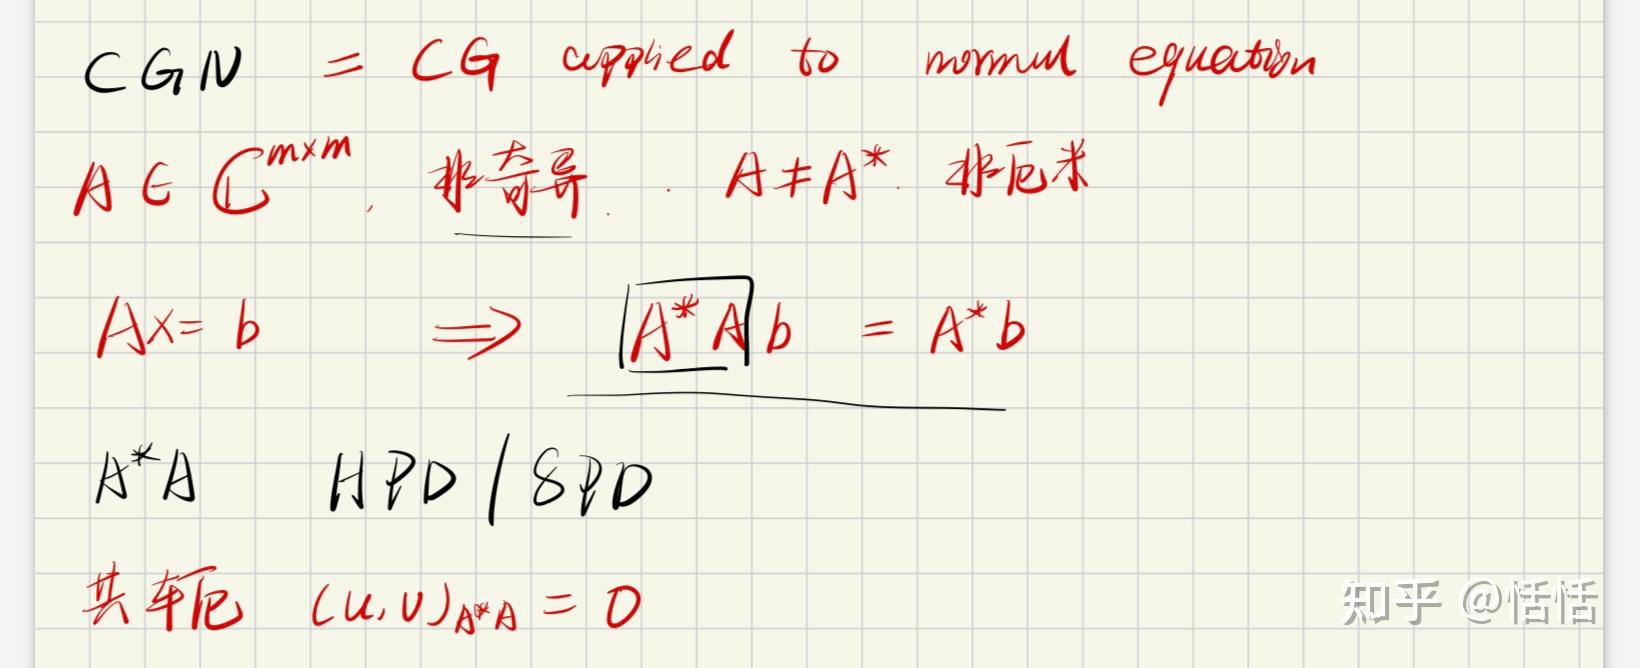 CGN = CG applied to normal equation
A ∈ ℂ^{m×m}, 非奇异. . A ≠ A*. 非厄米
Ax = b ⟹ A*A b = A*b
A*A HPD / SPD
共轭 (u, v)_{A*A} = 0
知乎 @恬恬